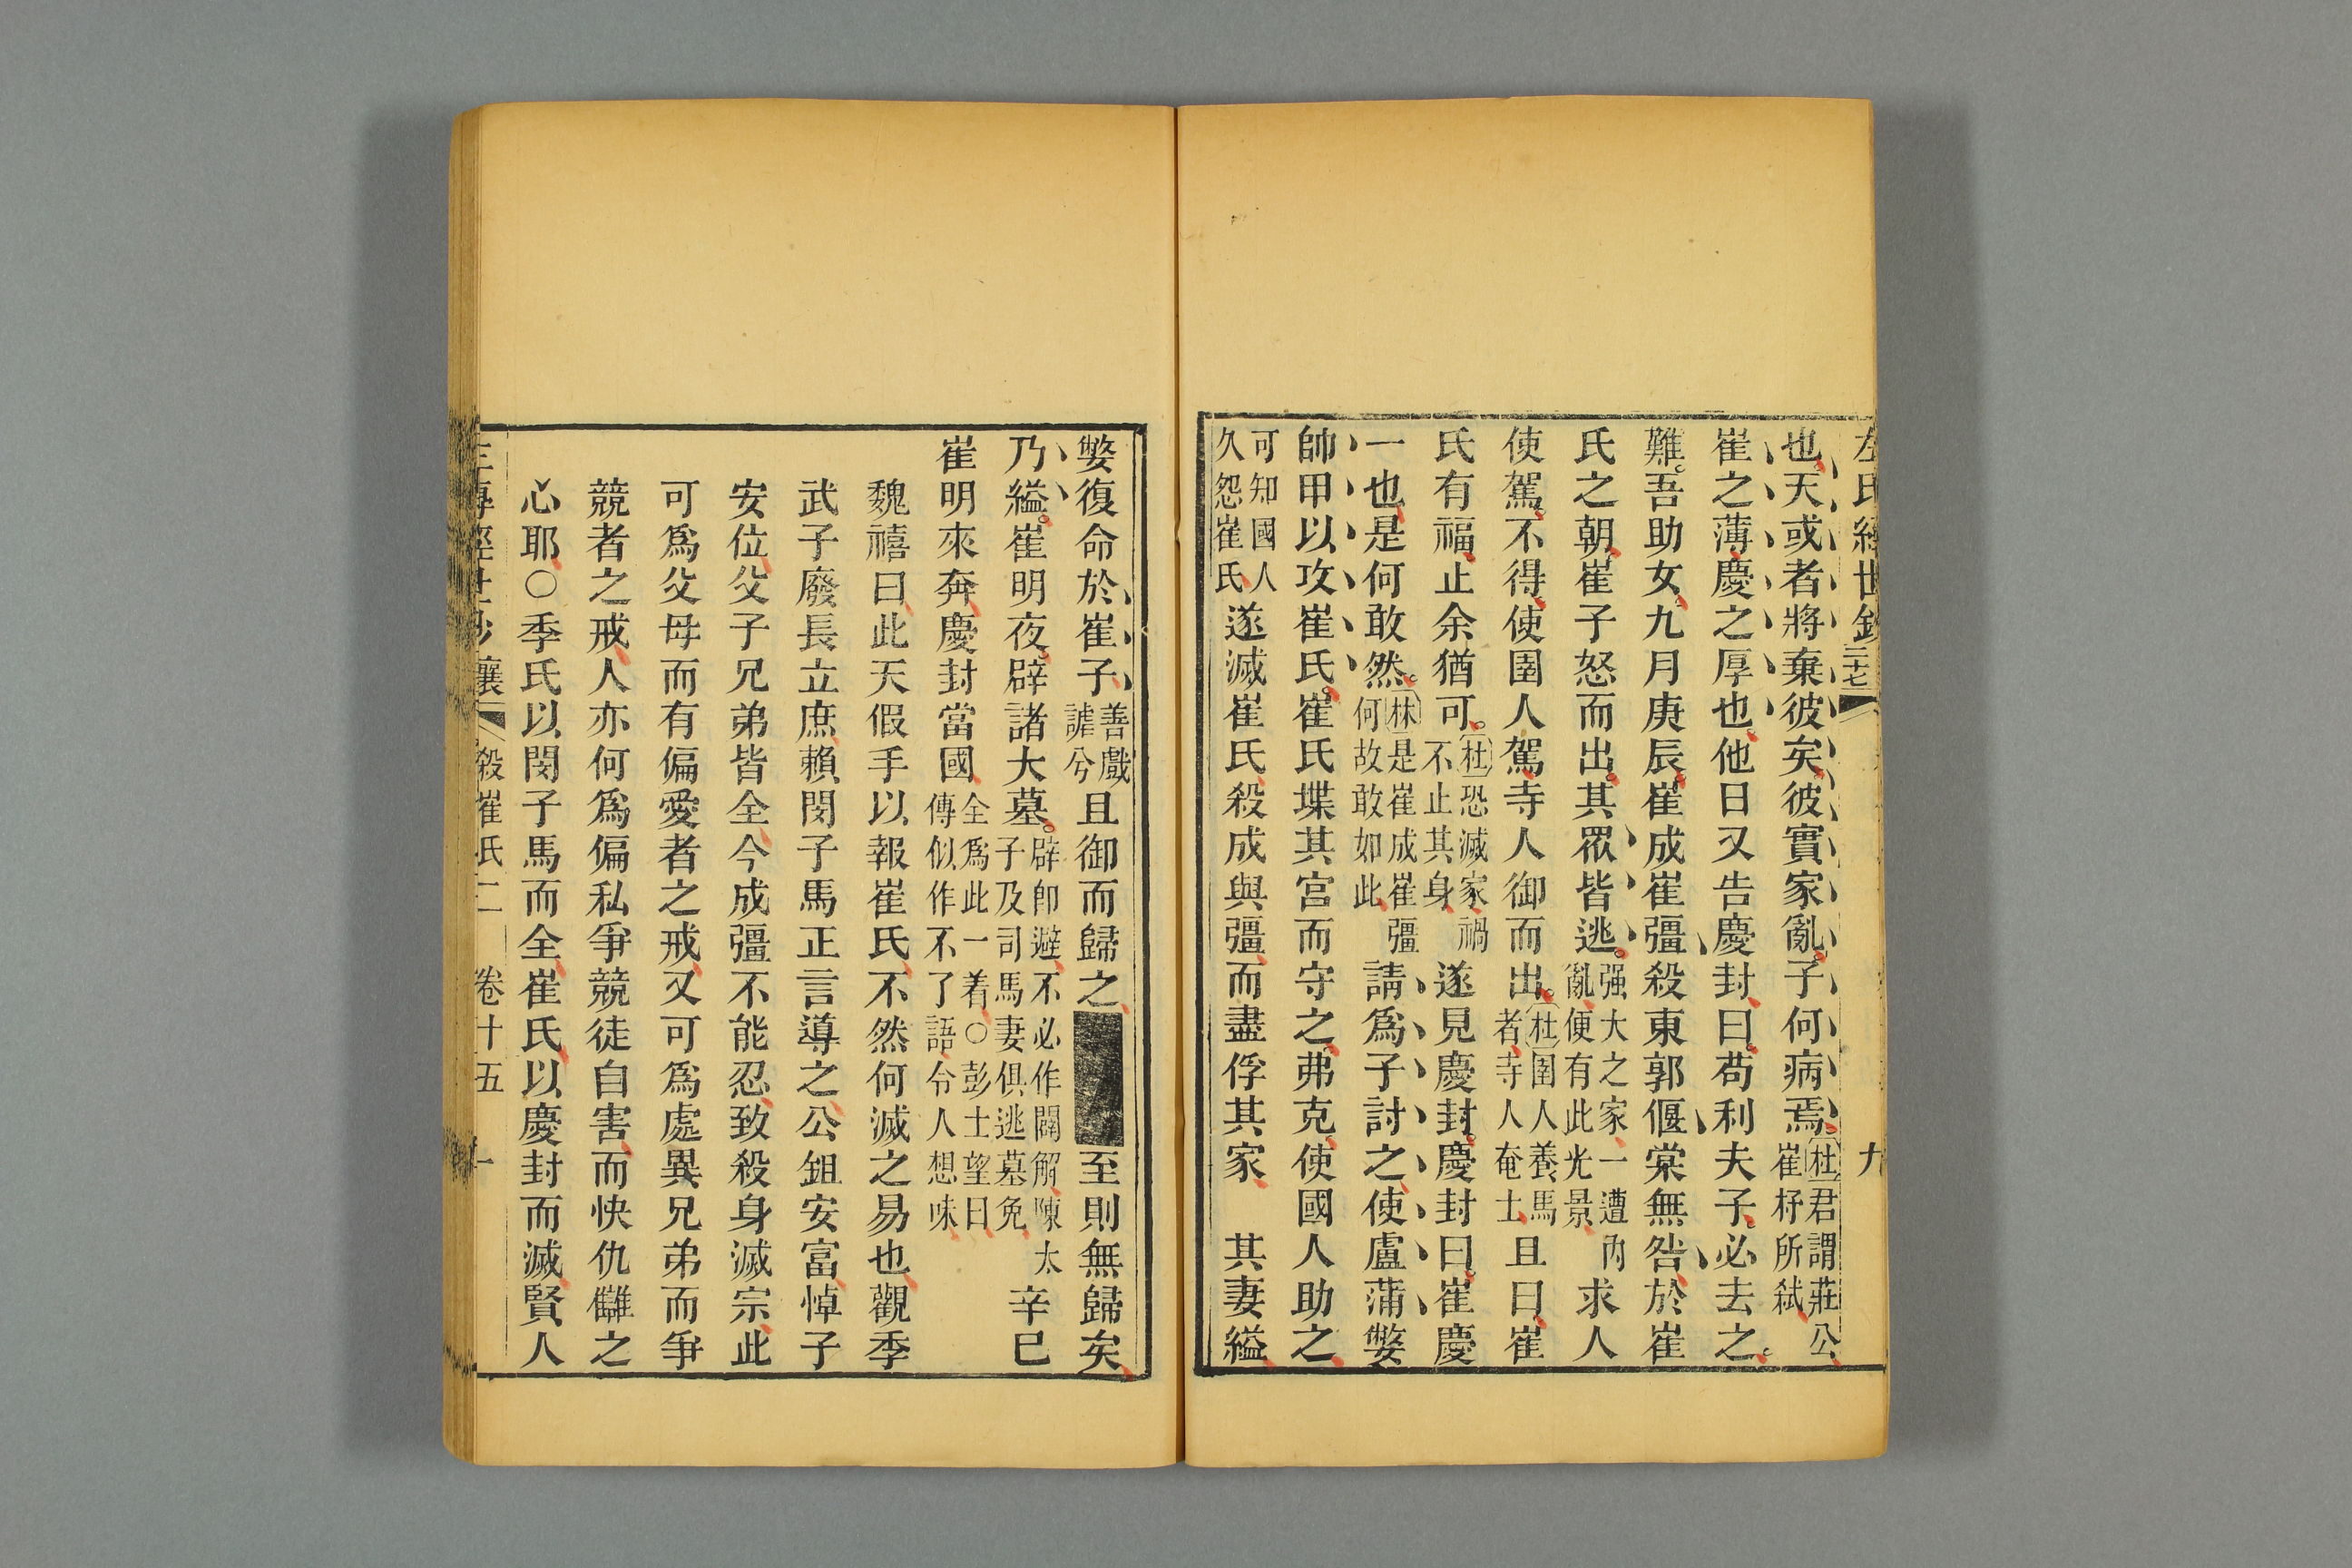 左氏經世鈔 二十七 九
也天或者將棄彼矣彼實家亂子何病焉杜君謂莊公崔杼所弒
崔之薄慶之厚也他日又告慶封曰苟利夫子必去之
難吾助女九月庚辰崔成崔彊殺東郭偃棠無咎於崔
氏之朝崔子怒而出其眾皆逃强大之家一遭內亂便有此光景求人
使駕不得使圉人駕寺人御而出杜圉人養馬者寺人奄士且曰崔
氏有福止余猶可杜恐滅家禍不止其身遂見慶封慶封曰崔慶
一也是何敢然林是崔成崔彊何故敢如此請爲子討之使盧蒲嫳
帥甲以攻崔氏崔氏堞其宮而守之弗克使國人助之
可知國人久怨崔氏遂滅崔氏殺成與彊而盡俘其家 其妻縊
嫳復命於崔子善戲謔兮且御而歸之至則無歸矣
乃縊崔明夜辟諸大墓辟卽避不必作闢解陳太子及司馬妻俱逃墓免辛巳
崔明來奔慶封當國全爲此一着○彭士望曰傳似作不了語令人想味
魏禧曰此天假手以報崔氏不然何滅之易也觀季
武子廢長立庶賴閔子馬正言導之公鉏安富悼子
安位父子兄弟皆全今成彊不能忍致殺身滅宗此
可爲父母而有偏愛者之戒又可爲處異兄弟而爭
競者之戒人亦何爲偏私爭競徒自害而快仇讎之
心耶○季氏以閔子馬而全崔氏以慶封而滅賢人
襄 殺崔氏二 卷十五